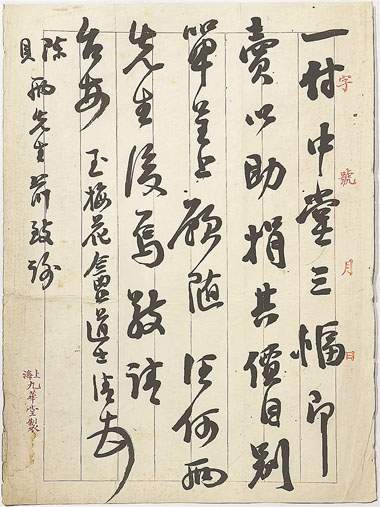 字號 月 日
一付中堂三幅即
賣以助捐其價目別
單呈上願隨汪何兩
先生後焉敬請
台安 玉梅花盦道士清
陳貝兩先生前致謝
上海九華堂製